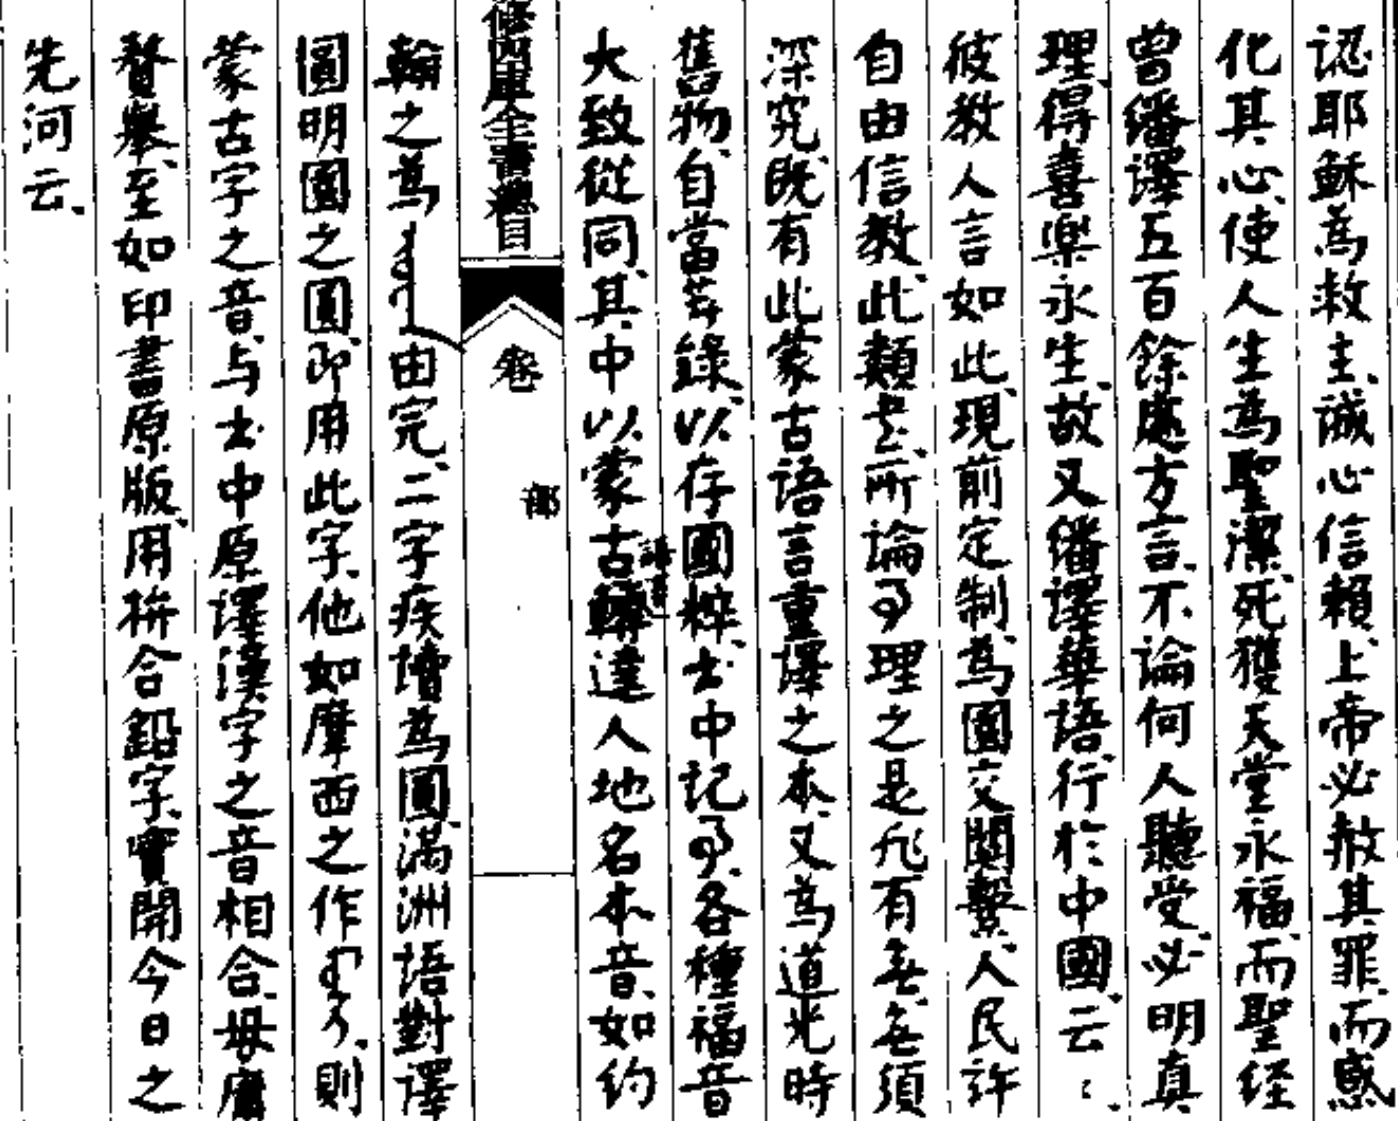 認耶穌為救主、誠心信賴、上帝必赦其罪、而感
化其心、使人生為聖潔、死獲天堂永福、而聖経
曾繙譯五百餘處方言、不論何人聽受、必明真
理、得喜樂永生、故又繙譯華語、行於中國、云云、
彼教人言如此、現前定制、為國交關繫、人民許
自由信教、此類書、所論理之是非有無、無須
深究、既有此蒙古語言重譯之本、又為道光時
舊物、自當著錄、以存國粹、書中記、各種福音
大致從同、其中以蒙古語言轉達人地名本音、如約
修四庫全書總目
卷
部
翰之為由完、二字疾讀為圓、滿洲語對譯
圓明園之圓、即用此字、他如摩西之作、則
蒙古字之音、与書中原譯漢字之音相合、毋庸
贅舉、至如印書原版、用拼合鉛字、實開今日之
先河云、